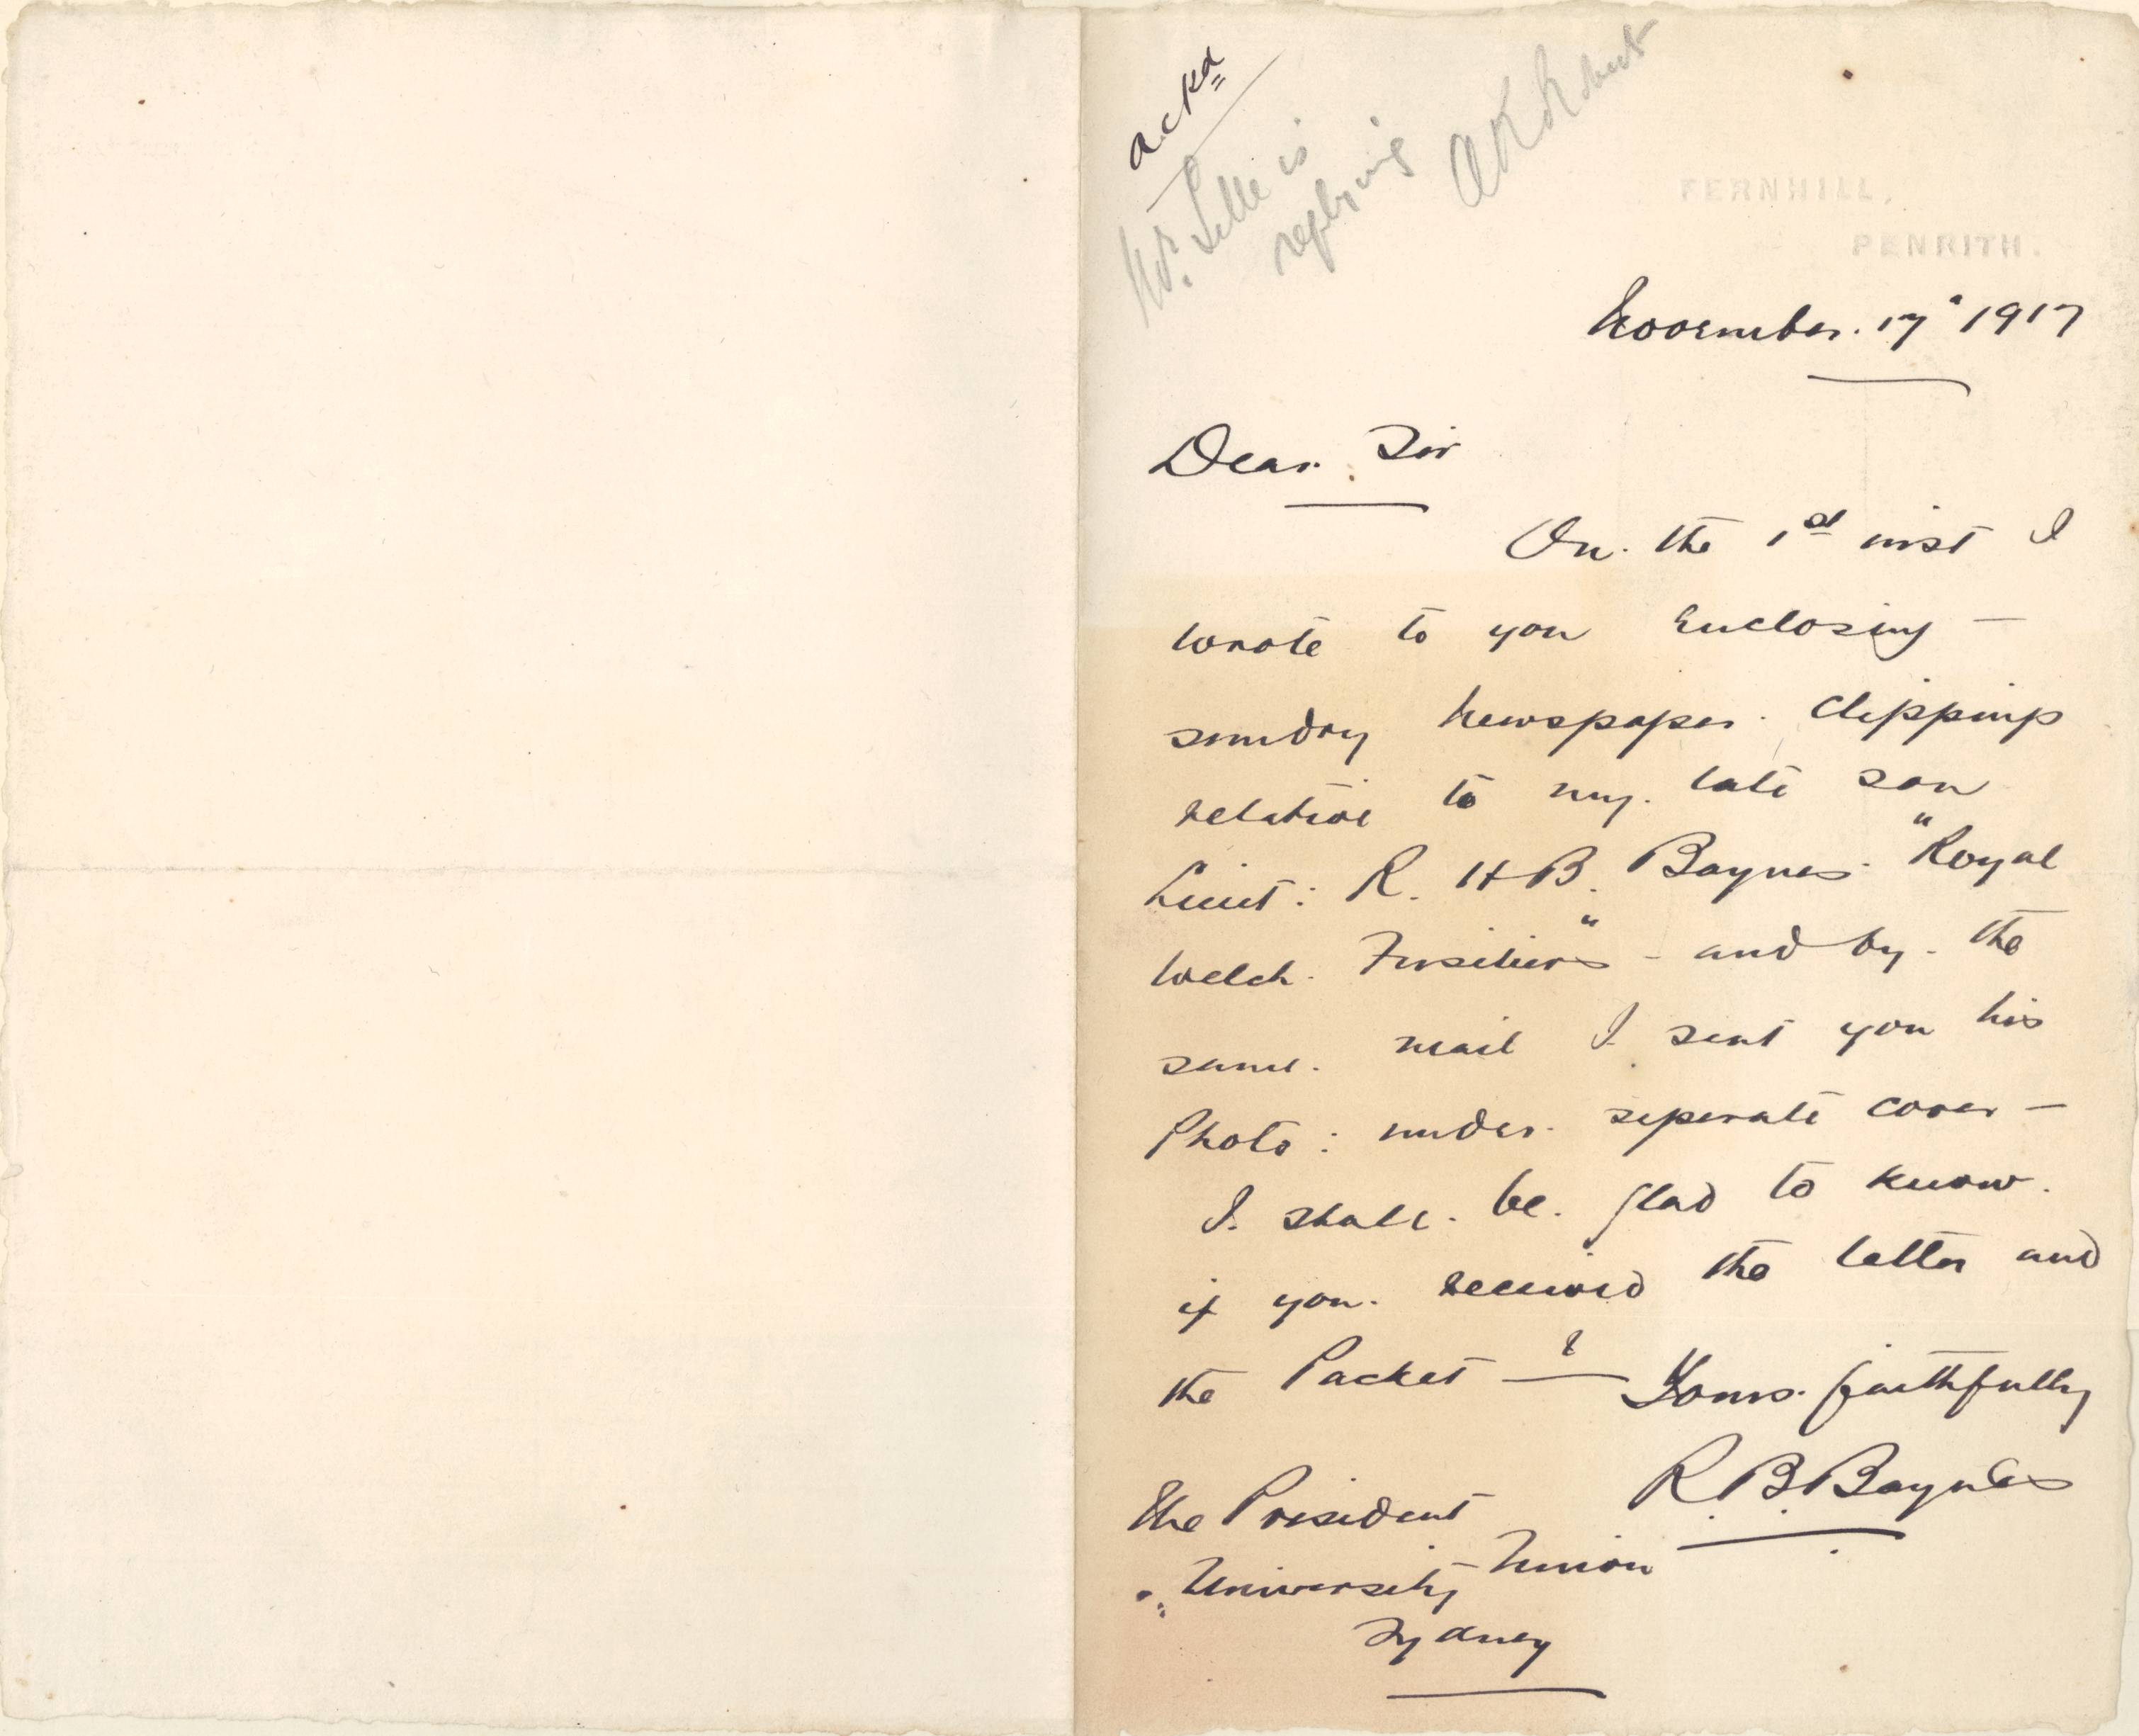 ackd
Mr. Selle is
replying
FERNHILL,
PENRITH.
November. 17" 1917
Dear Sir
On the 1st inst I
wrote to you enclosing —
sundry newspaper clippings
relative to my late son
Lieut: R. H B. Baynes "Royal
Welch Fusiliers" - and by the
same mail I sent you his
Photo: under seperate cover —
I shall be glad to know
if you received the letter and
the Packet — ?
Yours faithfully
R. B. Baynes
The President
" University Union
Sydney